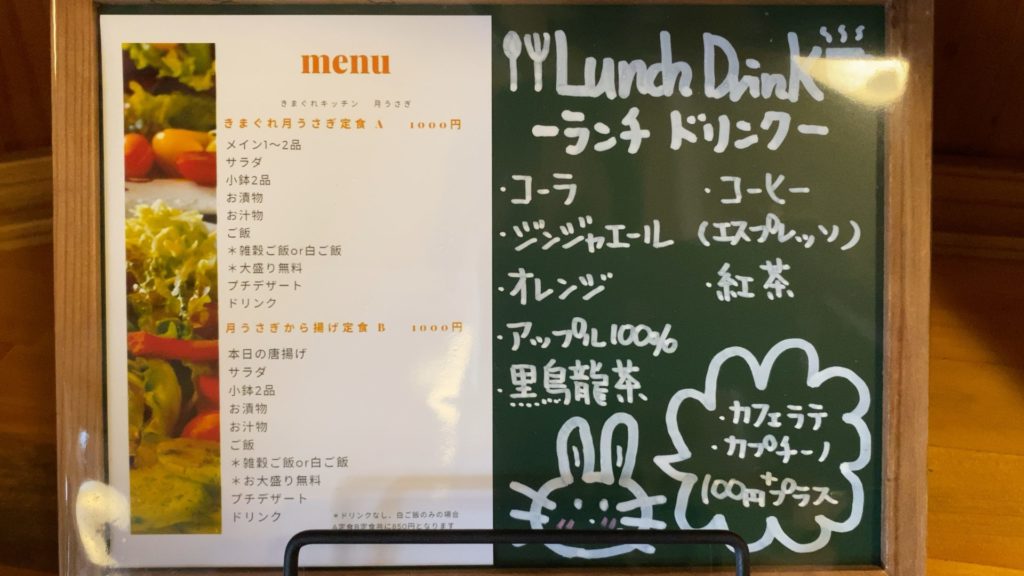 menu
きまぐれキッチン 月うさぎ
きまぐれ月うさぎ定食 A 1000円
メイン1〜2品
サラダ
小鉢2品
お漬物
お汁物
ご飯
＊雑穀ご飯or白ご飯
＊大盛り無料
プチデザート
ドリンク
月うさぎから揚げ定食 B 1000円
本日の唐揚げ
サラダ
小鉢2品
お漬物
お汁物
ご飯
＊雑穀ご飯or白ご飯
＊お大盛り無料
プチデザート
ドリンク
＊ドリンクなし、白ご飯のみの場合
A定食B定食共に850円となります
Lunch Drink
ーランチ ドリンクー
・コーラ
・ジンジャエール
・オレンジ
・アップル100%
・黒烏龍茶
・コーヒー
(エスプレッソ)
・紅茶
・カフェラテ
・カプチーノ
+
100円プラス